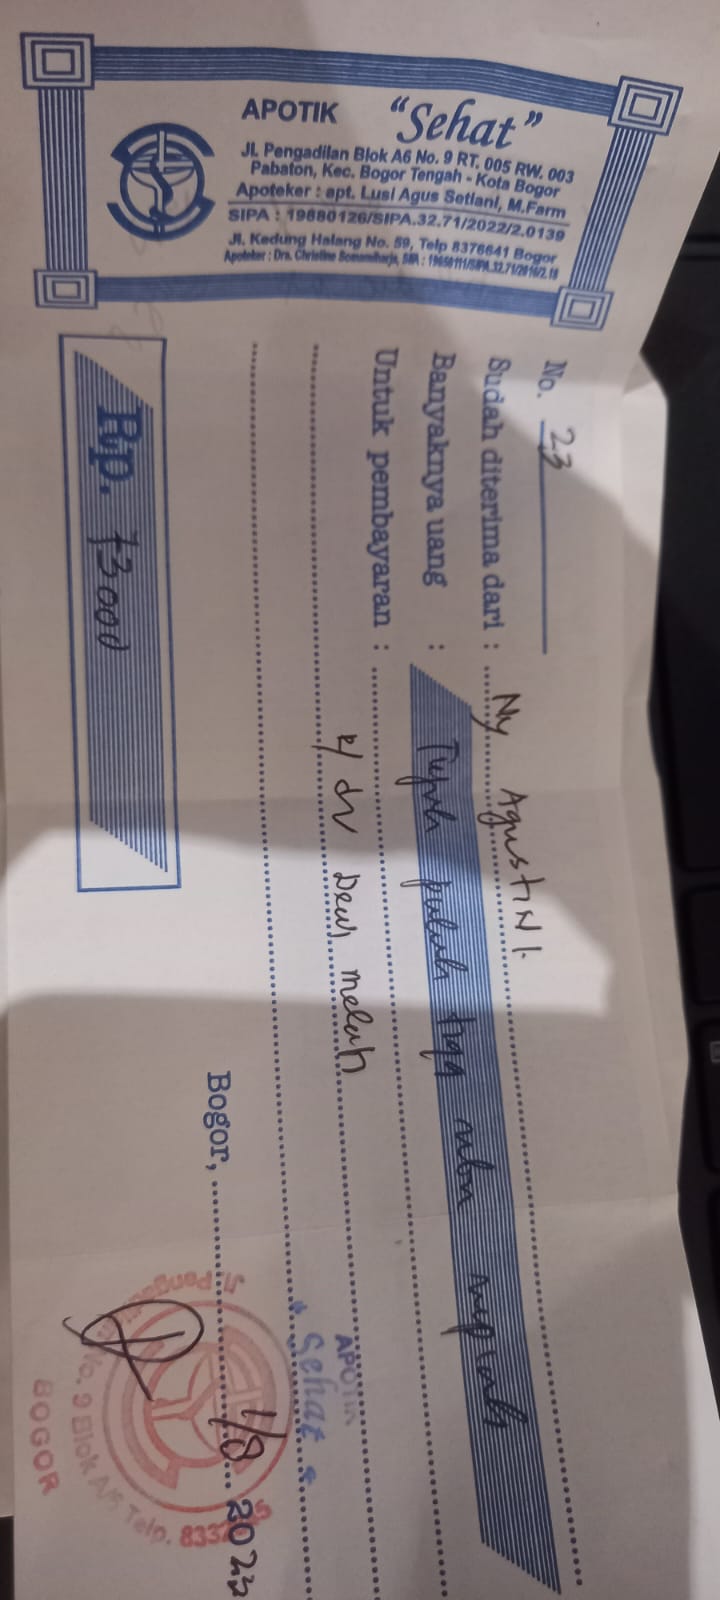 APOTIK "Sehat"
Jl. Pengadilan Blok A6 No. 9 RT. 005 RW. 003
Pabaton, Kec. Bogor Tengah - Kota Bogor
Apoteker : apt. Lusi Agus Setiani, M.Farm
SIPA : 19880126/SIPA.32.71/2022/2.0139
Jl. Kedung Halang No. 59, Telp 8376641 Bogor
Apoteker : Dra. Christine
No. 23
Sudah diterima dari : Ny Agustini
Banyaknya uang : Tujuh puluh tiga ribu rupiah
Untuk pembayaran :
R/ dr Dewi
Rp. 73000
Bogor, 1/8 2022
APOTIK
"Sehat"
No. 9 Blok A/6 Telp.
BOGOR